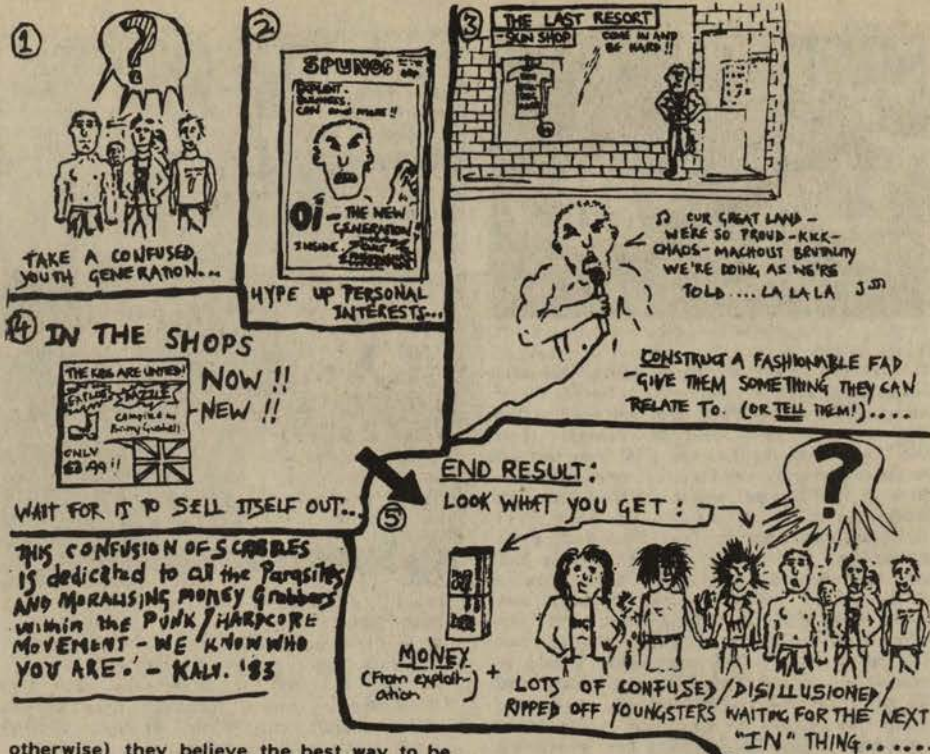 1
?
TAKE A CONFUSED
YOUTH GENERATION...
2
SPUNOS
EXPLOIT.
CAN AND MAKE!!
Oi - THE NEW
GENERATION
INSIDE.
HYPE UP PERSONAL
INTERESTS...
3
THE LAST RESORT
-SKIN SHOP
COME IN AND
BE HARD!!
OUR GREAT LAND -
WE'RE SO PROUD - KKK -
CHAOS - MACHOIST BRUTALITY
WE'RE DOING AS WE'RE
TOLD .... LA LA LA
CONSTRUCT A FASHIONABLE FAD
- GIVE THEM SOMETHING THEY CAN
RELATE TO. (OR TELL THEM!)....
4
IN THE SHOPS
THE KIDS ARE UNITED!
DAZZLE
COMPILED BY
ONLY
£3.99!!
NOW!!
-NEW!!
WAIT FOR IT TO SELL ITSELF OUT...
THIS CONFUSION OF SCRIBBLES
is dedicated to all the Parasites
AND MORALISING MONEY Grabbers
within the PUNK/HARDCORE
MOVEMENT - WE KNOW WHO
YOU ARE! - KALV. '83
5
END RESULT:
LOOK WHAT YOU GET:
?
MONEY
(From exploit-
ation)
+
LOTS OF CONFUSED/DISILLUSIONED/
RIPPED OFF YOUNGSTERS WAITING FOR THE NEXT
"IN" THING......
otherwise) they believe the best way to be